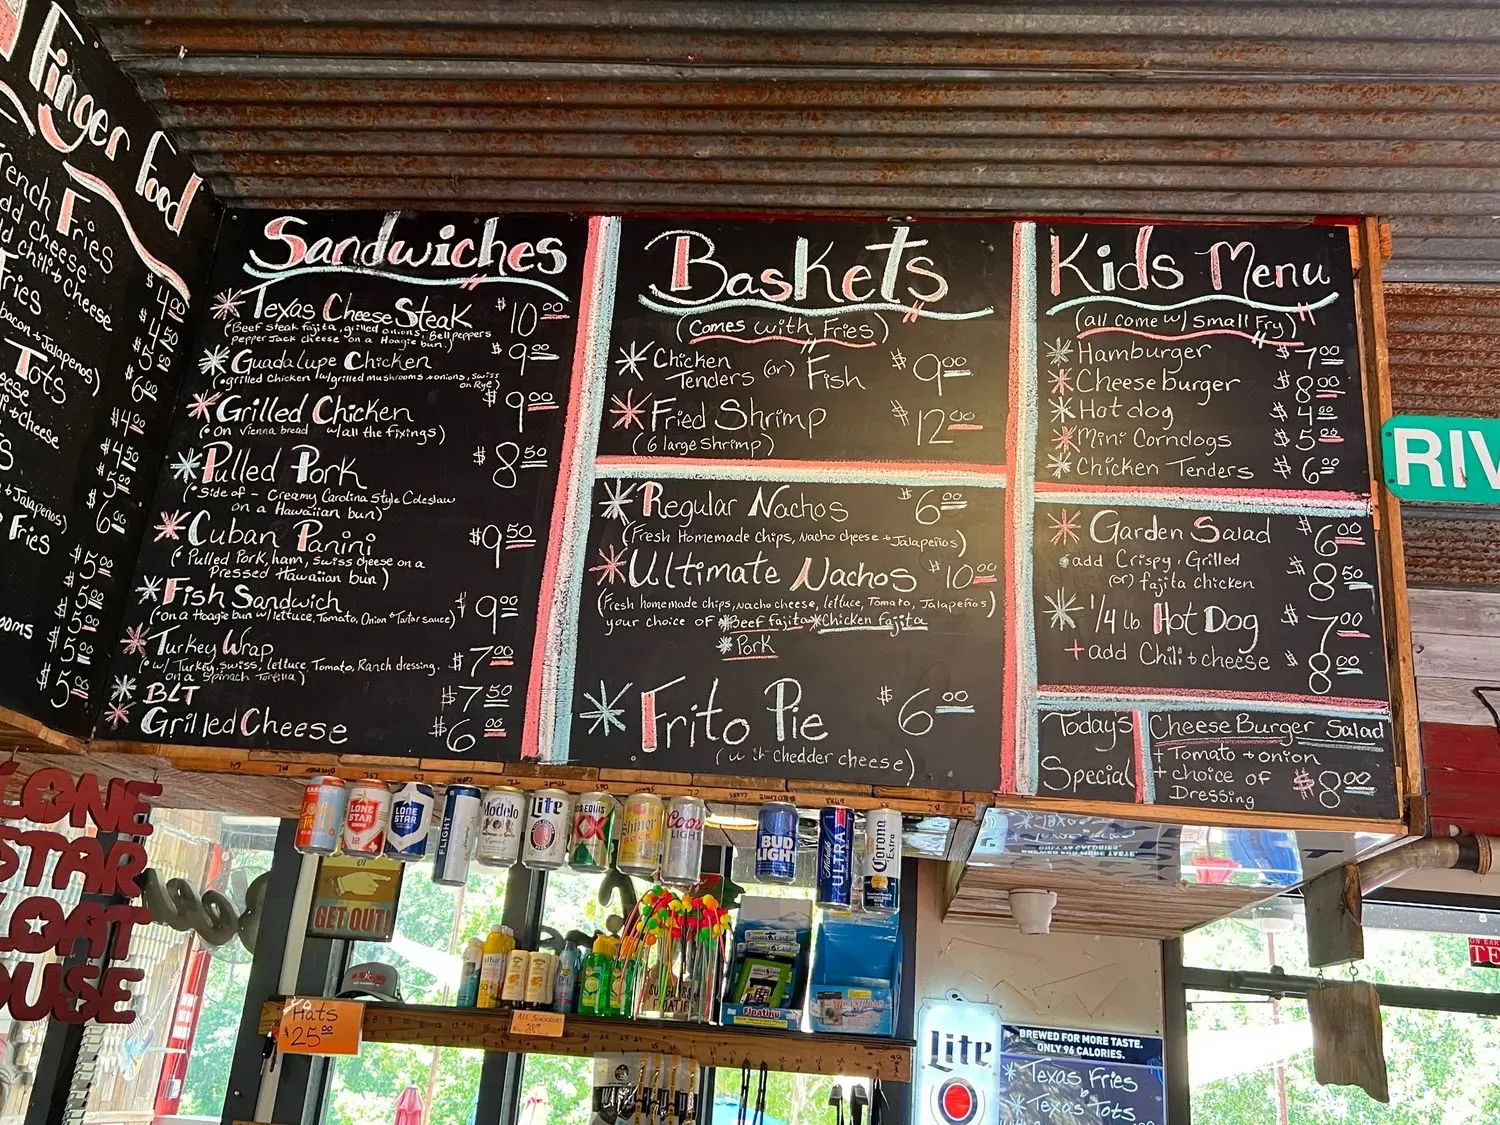 Finger Food
French Fries $4.00
add cheese $4.50
add chili + Cheese $5.50
Fries $6.00
bacon + Jalapeños)
Tots $4.00
cheese $4.50
chili + Cheese $5.00
+ Jalapeños) $6.00
Fries $5.00
$5.50
$5.00
rooms $5.00
Sandwiches
Texas Cheese Steak $10.00
(Beef steak fajita, grilled onions, Bell peppers
pepper Jack cheese on a Hoagie bun.)
Guadalupe Chicken $9.00
(grilled chicken w/grilled mushrooms + onions, swiss
on Rye)
Grilled Chicken $9.00
(On Vienna bread w/all the fixings)
Pulled Pork $8.50
(Side of - Creamy Carolina Style Coleslaw
on a Hawaiian bun)
Cuban Panini $9.50
(Pulled Pork, ham, swiss cheese on a
Pressed Hawaiian bun)
Fish Sandwich $9.00
(on a Hoagie bun w/lettuce, Tomato, Onion + Tartar sauce)
Turkey Wrap $7.00
(w/ Turkey, swiss, lettuce, Tomato, Ranch dressing.
on a Spinach Tortilla)
BLT $7.50
Grilled Cheese $6.00
Baskets
(Comes with Fries)
Chicken
Tenders (or) Fish $9.00
Fried Shrimp $12.00
(6 large shrimp)
Regular Nachos $6.00
(Fresh Homemade chips, Nacho cheese + Jalapeños)
Ultimate Nachos $10.00
(Fresh homemade chips, nacho cheese, lettuce, Tomato, Jalapeños)
your choice of *Beef fajita *Chicken fajita
*Pork
Frito Pie $6.00
(with chedder cheese)
Kids Menu
(all come w/ small Fry)
Hamburger $7.00
Cheeseburger $8.00
Hotdog $4.00
Mini Corndogs $5.00
Chicken Tenders $6.00
Garden Salad $6.00
add Crispy, Grilled
(or) fajita chicken $8.50
1/4 lb Hot Dog $7.00
+add Chili + cheese $8.00
Today's
Special
CheeseBurger Salad
+ Tomato + onion
+ choice of
Dressing $8.00
RIV
LONE
STAR
FLOAT
HOUSE
LONE STAR
LONE STAR
FLIGHT
Modelo
Lite
Dos Equis
Shiner
BOCK
Coors
LIGHT
BUD
LIGHT
Michelob
ULTRA
Corona
Extra
GET OUT!
Hats
$25.00
Floating
Lite
BREWED FOR MORE TASTE.
ONLY 96 CALORIES.
Texas Fries
Texas Tots